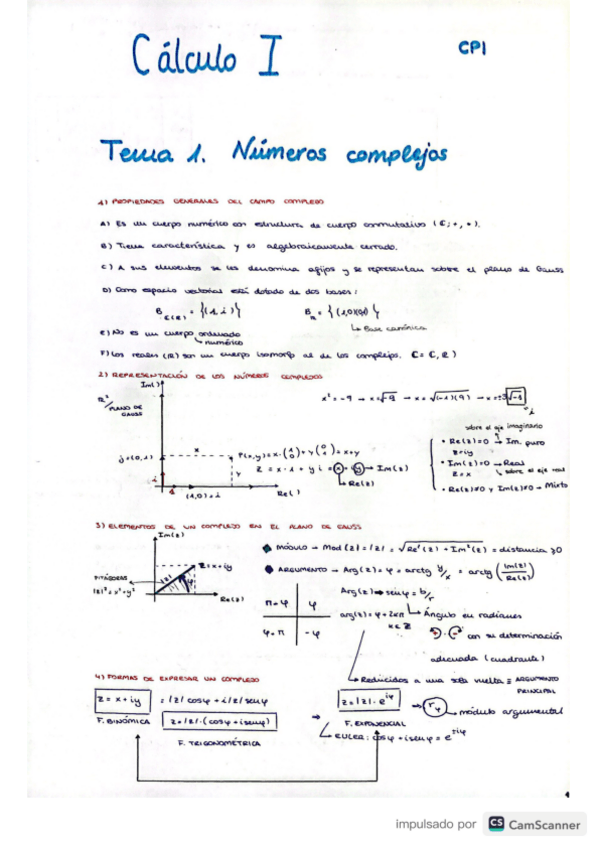 Cálculo I
CPI
Tema 1. Números complejos
1) PROPIEDADES GENERALES DEL CAMPO COMPLEJO
A) Es un cuerpo numérico con estructura de cuerpo conmutativo (ℂ; +, *).
B) Tiene característica y es algebraicamente cerrado.
C) A sus elementos se les denomina afijos y se representan sobre el plano de Gauss
D) Como espacio vectorial está dotado de dos bases:
B ℂ(ℝ) = {(1, i)}
B ℝ = {(1,0)(0,1)}
↳ Base canónica
E) No es un cuerpo ordenado
↳ numérico
F) Los reales (ℝ) son un cuerpo isomorfo al de los complejos.
2) REPRESENTACIÓN DE LOS NÚMEROS COMPLEJOS
Im( )
ℝ²
PLANO DE GAUSS
x² = -9 → x = √-9 → x = √(-1)(9) → x = ±3√-1
i
sobre el eje imaginario
j = (0,1)
x
P(x,y) = x·(1 0) + y(0 1) = x+y
y
z = x·1 + y i = x + iy → Im(z)
↳ Re(z)
(1,0) = 1
Re( )
• Re(z)=0 → Im. puro
z=iy
• Im(z)=0 → Real
z=x
↳ sobre el eje real
• Re(z)≠0 y Im(z)≠0 → Mixto
3) ELEMENTOS DE UN COMPLEJO EN EL PLANO DE GAUSS
Im(z)
z=x+iy
|z|
φ
Re(z)
PITÁGORAS
|z|² = x² + y²
MÓDULO → Mod (z) = |z| = √Re²(z) + Im²(z) = distancia ≥0
ARGUMENTO → Arg(z) = φ = arctg y/x = arctg (Im(z)/Re(z))
Arg(z) ⇒ sen φ = b/r
π-φ
φ
φ-π
-φ
arg(z) = φ + 2kπ
k∈ℤ
↳ Ángulo en radianes
con su determinación
adecuada (cuadrante)
↳ Reducidos a una sola vuelta ≡ ARGUMENTO PRINCIPAL
4) FORMAS DE EXPRESAR UN COMPLEJO
z = x + iy
= |z| cosφ + i|z| senφ
F. BINÓMICA
z = |z|·(cosφ + i senφ)
F. TRIGONOMÉTRICA
z = |z|·e^iφ
F. EXPONENCIAL
→ rφ → módulo argumental
↳ EULER: cosφ + i senφ =
1
impulsado por CS CamScanner